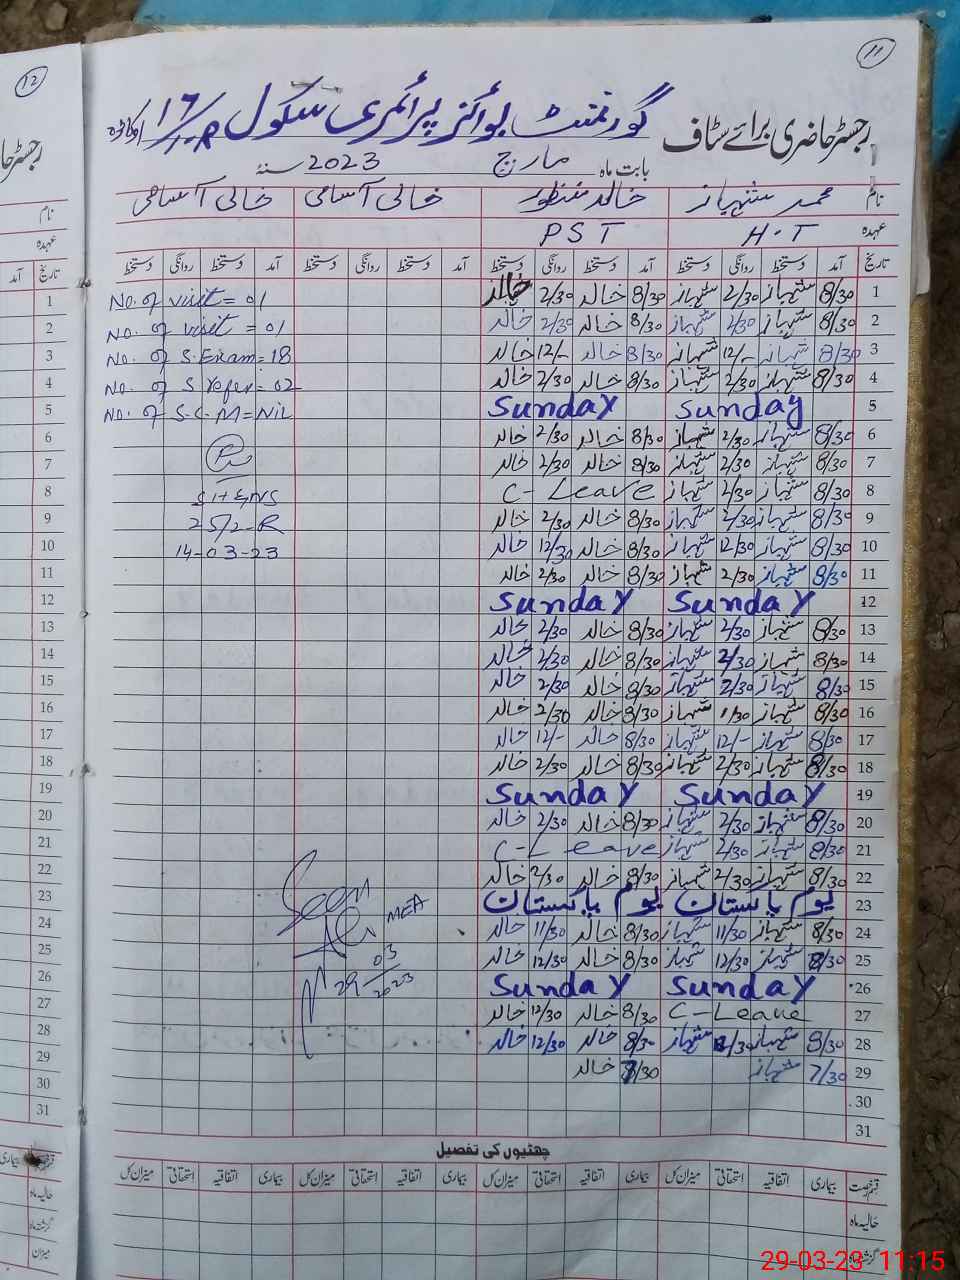 12
11
رجسٹر حاضری برائے سٹاف گورنمنٹ بوائز پرائمری سکول اوکاڑہ
بابت ماہ مارچ 2023 سنہ
نام محمد شہباز خالد منظور خالی آسامی خالی آسامی
عہدہ H.T PST
تاریخ آمد دستخط روانگی دستخط آمد دستخط روانگی دستخط آمد دستخط روانگی دستخط آمد دستخط روانگی دستخط
1 8/30 شہباز 2/30 شہباز 8/30 خالد 2/30 خالد No. of visit = 01
2 8/30 شہباز 2/30 شہباز 8/30 خالد 2/30 خالد No. of visit = 01
3 8/30 شہباز 12/- شہباز 8/30 خالد 12/- خالد No. of S.Exam = 18
4 8/30 شہباز 2/30 شہباز 8/30 خالد 2/30 خالد No. of S refer = 02
5 Sunday Sunday No. of S.C.M = Nil
6 8/30 شہباز 2/30 شہباز 8/30 خالد 2/30 خالد
7 8/30 شہباز 2/30 شہباز 8/30 خالد 2/30 خالد
8 8/30 شہباز 2/30 شہباز C-Leave
9 8/30 شہباز 2/30 شہباز 8/30 خالد 2/30 خالد 25/2-R
10 8/30 شہباز 12/30 شہباز 8/30 خالد 12/30 خالد 14-03-23
11 8/30 شہباز 2/30 شہباز 8/30 خالد 2/30 خالد
12 Sunday Sunday
13 8/30 شہباز 2/30 شہباز 8/30 خالد 2/30 خالد
14 8/30 شہباز 2/30 شہباز 8/30 خالد 2/30 خالد
15 8/30 شہباز 2/30 شہباز 8/30 خالد 2/30 خالد
16 8/30 شہباز 1/30 شہباز 8/30 خالد 2/30 خالد
17 8/30 شہباز 12/- شہباز 8/30 خالد 12/- خالد
18 8/30 شہباز 2/30 شہباز 8/30 خالد 2/30 خالد
19 Sunday Sunday
20 8/30 شہباز 2/30 شہباز 8/30 خالد 2/30 خالد
21 8/30 شہباز 2/30 شہباز C-Leave
22 8/30 شہباز 2/30 شہباز 8/30 خالد 2/30 خالد
23 یوم پاکستان یوم پاکستان Seen
24 8/30 شہباز 11/30 شہباز 8/30 خالد 11/30 خالد MEA
25 8/30 شہباز 12/30 شہباز 8/30 خالد 12/30 خالد
26 Sunday Sunday 29/03/2023
27 C-Leave 8/30 خالد 12/30 خالد
28 8/30 شہباز 12/30 شہباز 8/30 خالد 12/30 خالد
29 7/30 شہباز 7/30 خالد
30
31
چھٹیوں کی تفصیل
قسم رخصت بیماری اتفاقیہ استحقاقی میزان کل بیماری اتفاقیہ استحقاقی میزان کل بیماری اتفاقیہ استحقاقی میزان کل
حالیہ ماہ
گزشتہ ماہ
رجسٹر حا
نام
عہدہ
تاریخ آمد
1
2
3
4
5
6
7
8
9
10
11
12
13
14
15
16
17
18
19
20
21
22
23
24
25
26
27
28
29
30
31
بیماری
حالیہ ماہ
گزشتہ ماہ
میزان
29-03-23 11:15